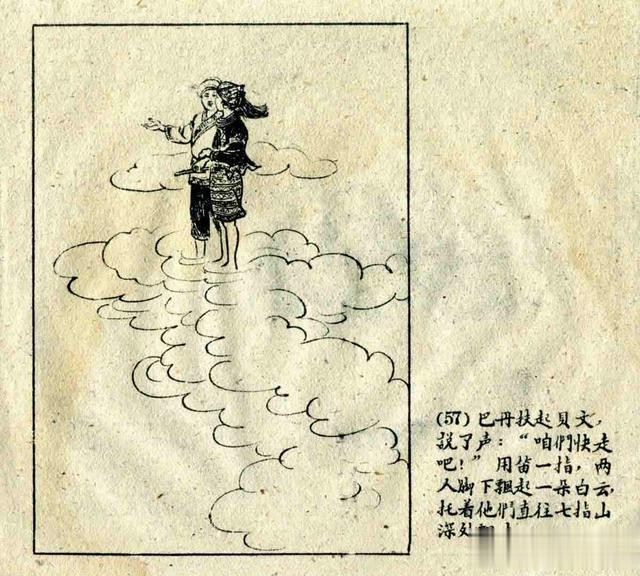 (57) 巴丹扶起貝文,
説了声:“咱們快走
吧!”用笛一指,两
人脚下飄起一朵白云,
托着他們直往七指山
深处